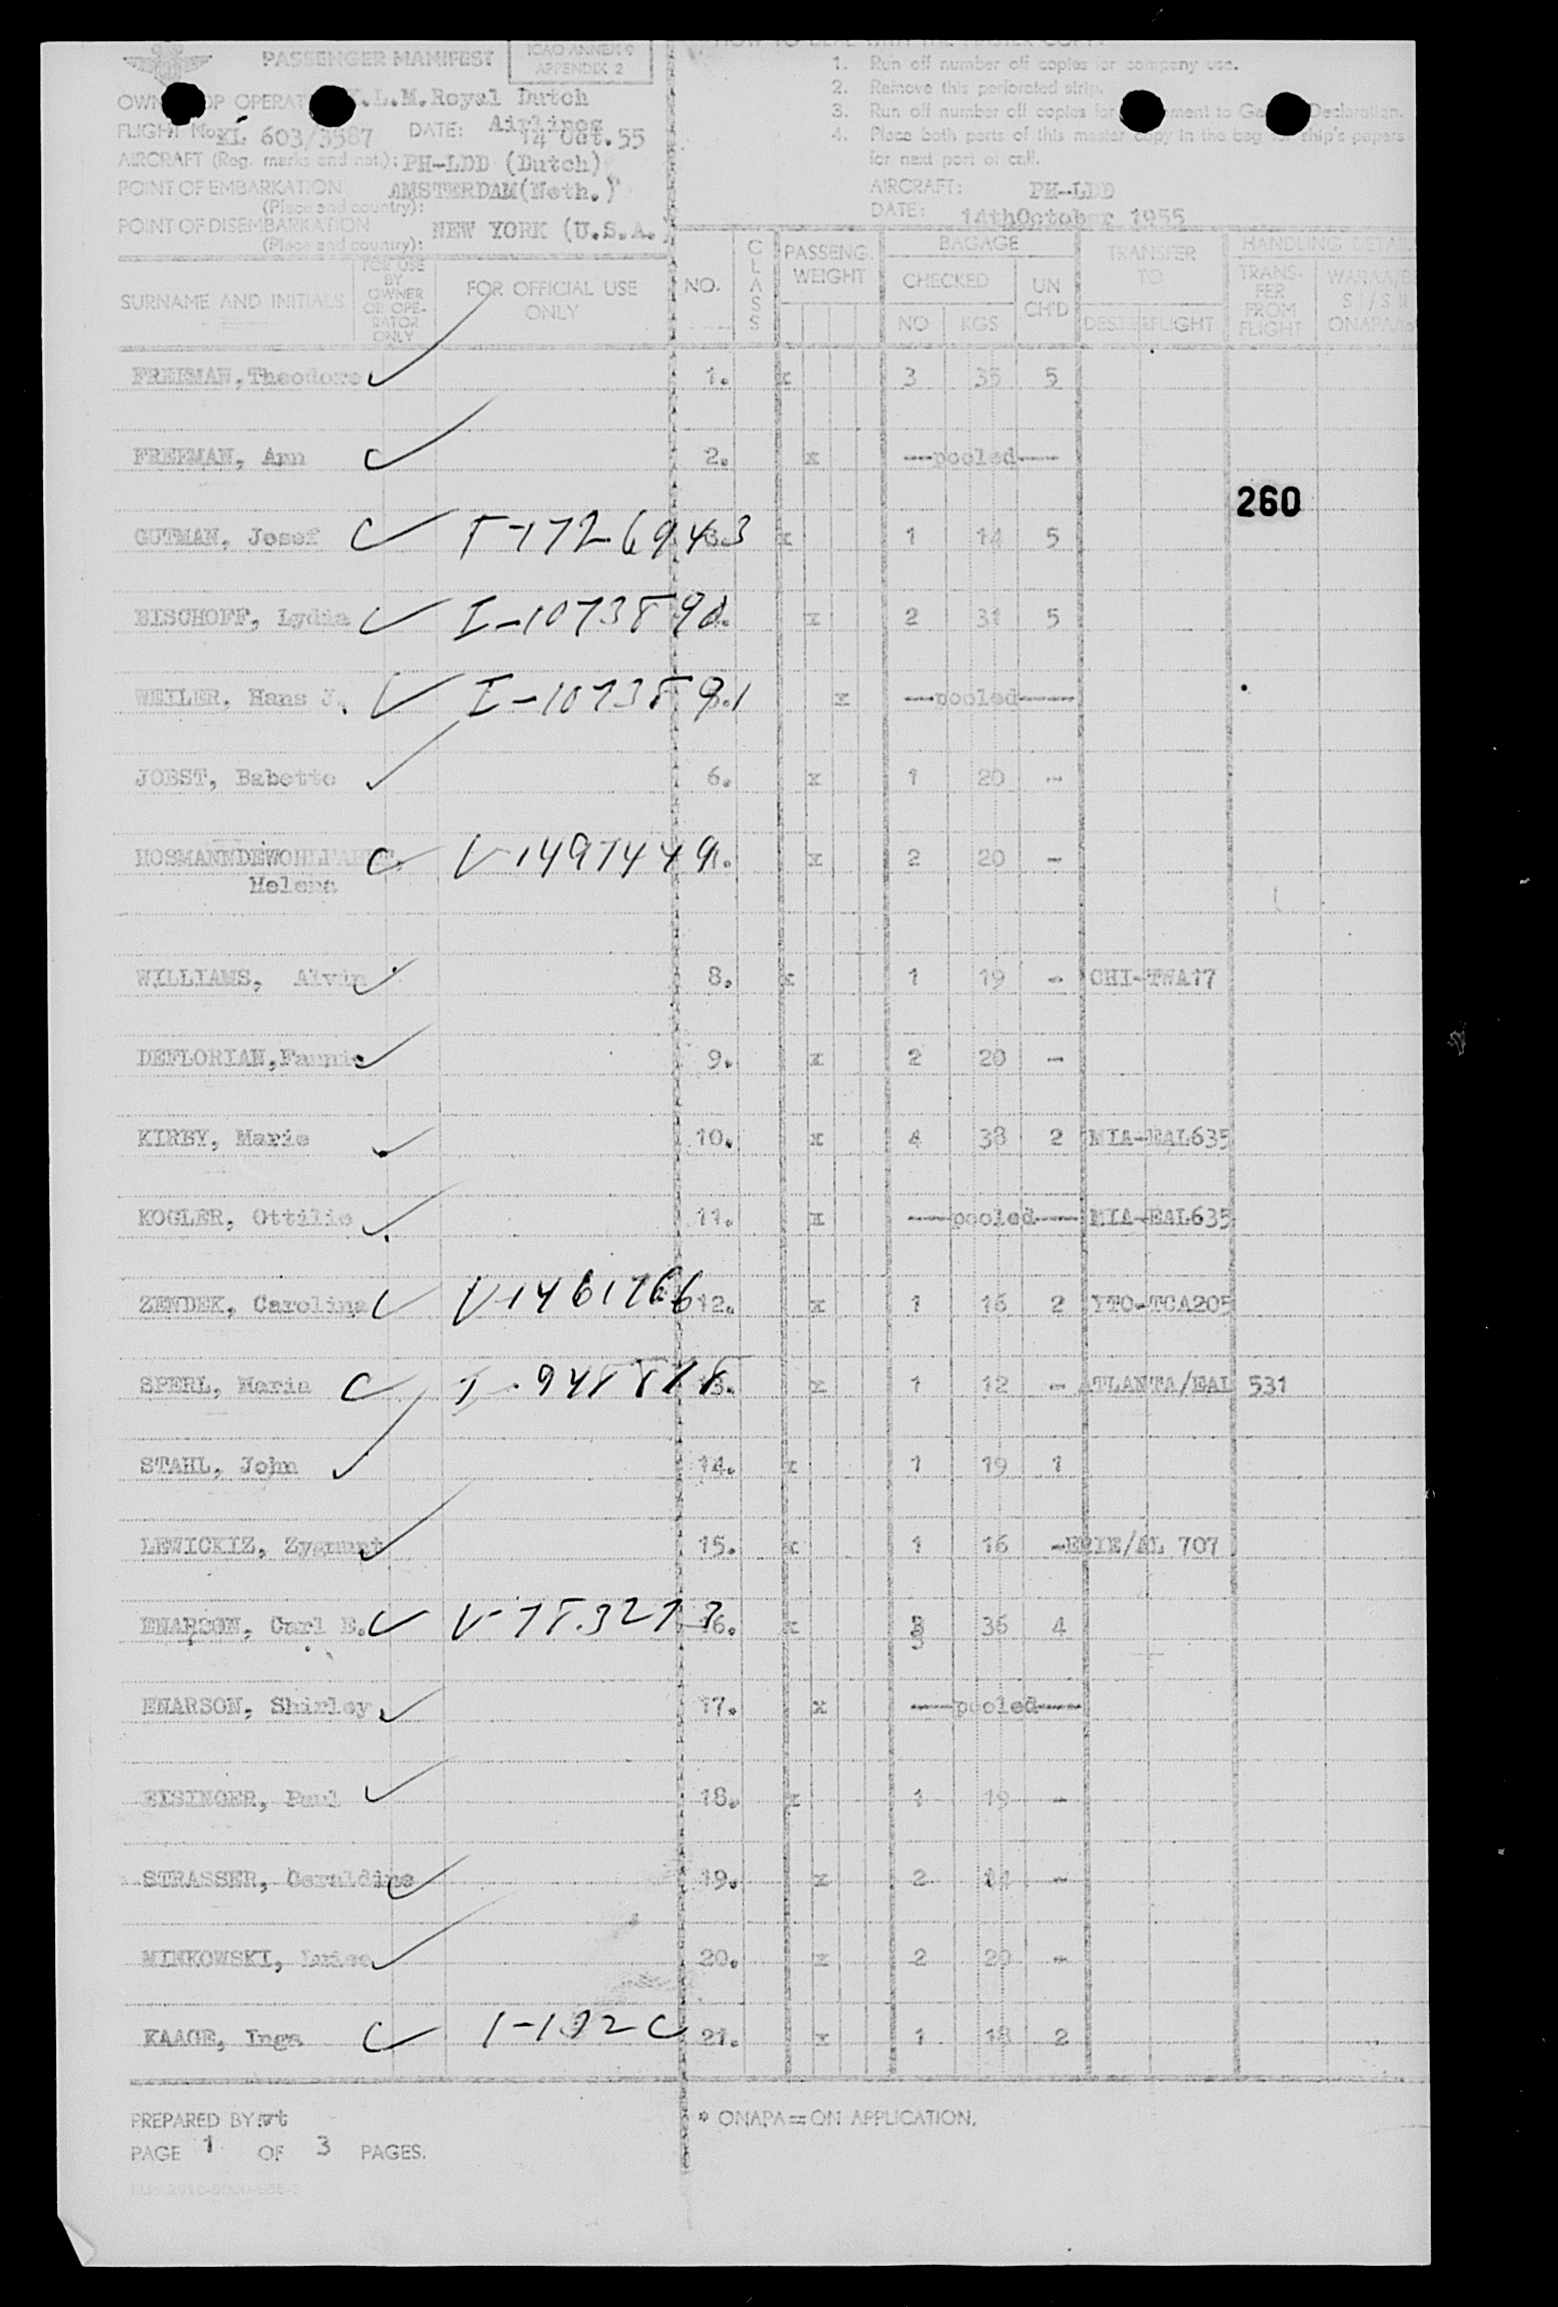 PASSENGER MANIFEST
ICAO ANNEX 9
APPENDIX 2
OWNER OR OPERATOR K.L.M.Royal Dutch
Airlines
FLIGHT No. KL 603/3587 DATE: 14 Oct.55
AIRCRAFT (Reg. marks and nat.): PH-LDD (Dutch)
POINT OF EMBARKATION AMSTERDAM(Neth.)
(Place and country):
POINT OF DISEMBARKATION NEW YORK (U.S.A.)
(Place and country):
HOW TO DEAL WITH THE MASTER COPY:
1. Run off number off copies for company use.
2. Remove this perforated strip.
3. Run off number off copies for ment to Declaration.
4. Place both parts of this master copy in the bag for ship's papers
for next port of call.
AIRCRAFT: PH-LDD
DATE: 14thOctober 1955
SURNAME AND INITIALS FOR USE BY OWNER OR OPERATOR ONLY FOR OFFICIAL USE ONLY NO. CLASS PASSENG. WEIGHT BAGAGE CHECKED NO KGS UN CH'D TRANSFER TO DEST. FLIGHT HANDLING TRANSFER FROM FLIGHT
FREEMAN,Theodore 1. x 3 35 5
FREEMAN, Ann 2. x ---pooled---
260
GUTMAN, Josef T-1726943 3. x 1 14 5
BISCHOFF, Lydia I-1073890 x 2 31 5
WEILER, Hans J. I-1073891 x ---pooled---
JOBST, Babette 6. x 1 20 -
HOSMANNDEWOHLFAHRT, V-1497449 x 2 20 -
Helena
WILLIAMS, Alvin 8. x 1 19 - CHI-TWA17
DEFLORIAN,Fannie 9. x 2 20 -
KIRBY, Marie 10. x 4 38 2 MIA-EAL635
KOGLER, Ottilie 11. x ---pooled--- MIA-EAL635
ZENDEK, Carolina V-1461766 12. x 1 16 2 YTO-TCA205
SPERL, Maria I-948818 13. x 1 12 - ATLANTA/EAL 531
STAHL, John 14. x 1 19 1
LEWICKIZ, Zygmunt 15. x 1 16 - ERIE/AL 707
ENARSON, Carl E. V-783273 16. x 3 36 4
ENARSON, Shirley 17. x ---pooled---
EISINGER, Paul 18. x 1 19 -
STRASSER, Geraldine 19. x 2 14 -
MINKOWSKI, Luise 20. x 2 20 -
KAAGE, Inga 21. x 1 18 2
PREPARED BY: * ONAPA=ON APPLICATION.
PAGE 1 OF 3 PAGES.